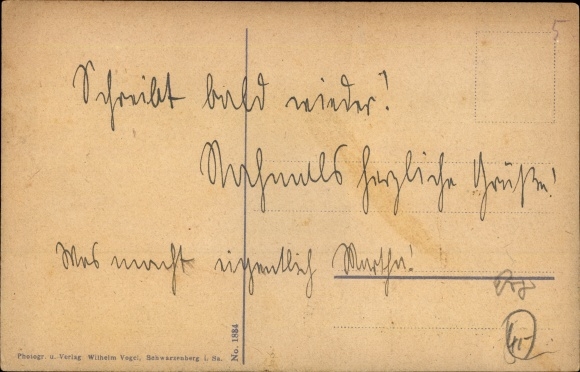 5
Schreibt bald wieder!
Nochmals herzliche Grüße!
Was macht eigentlich Martha!
45
Photogr. u. Verlag Wilhelm Vogel, Schwarzenberg i. Sa.
No. 1884